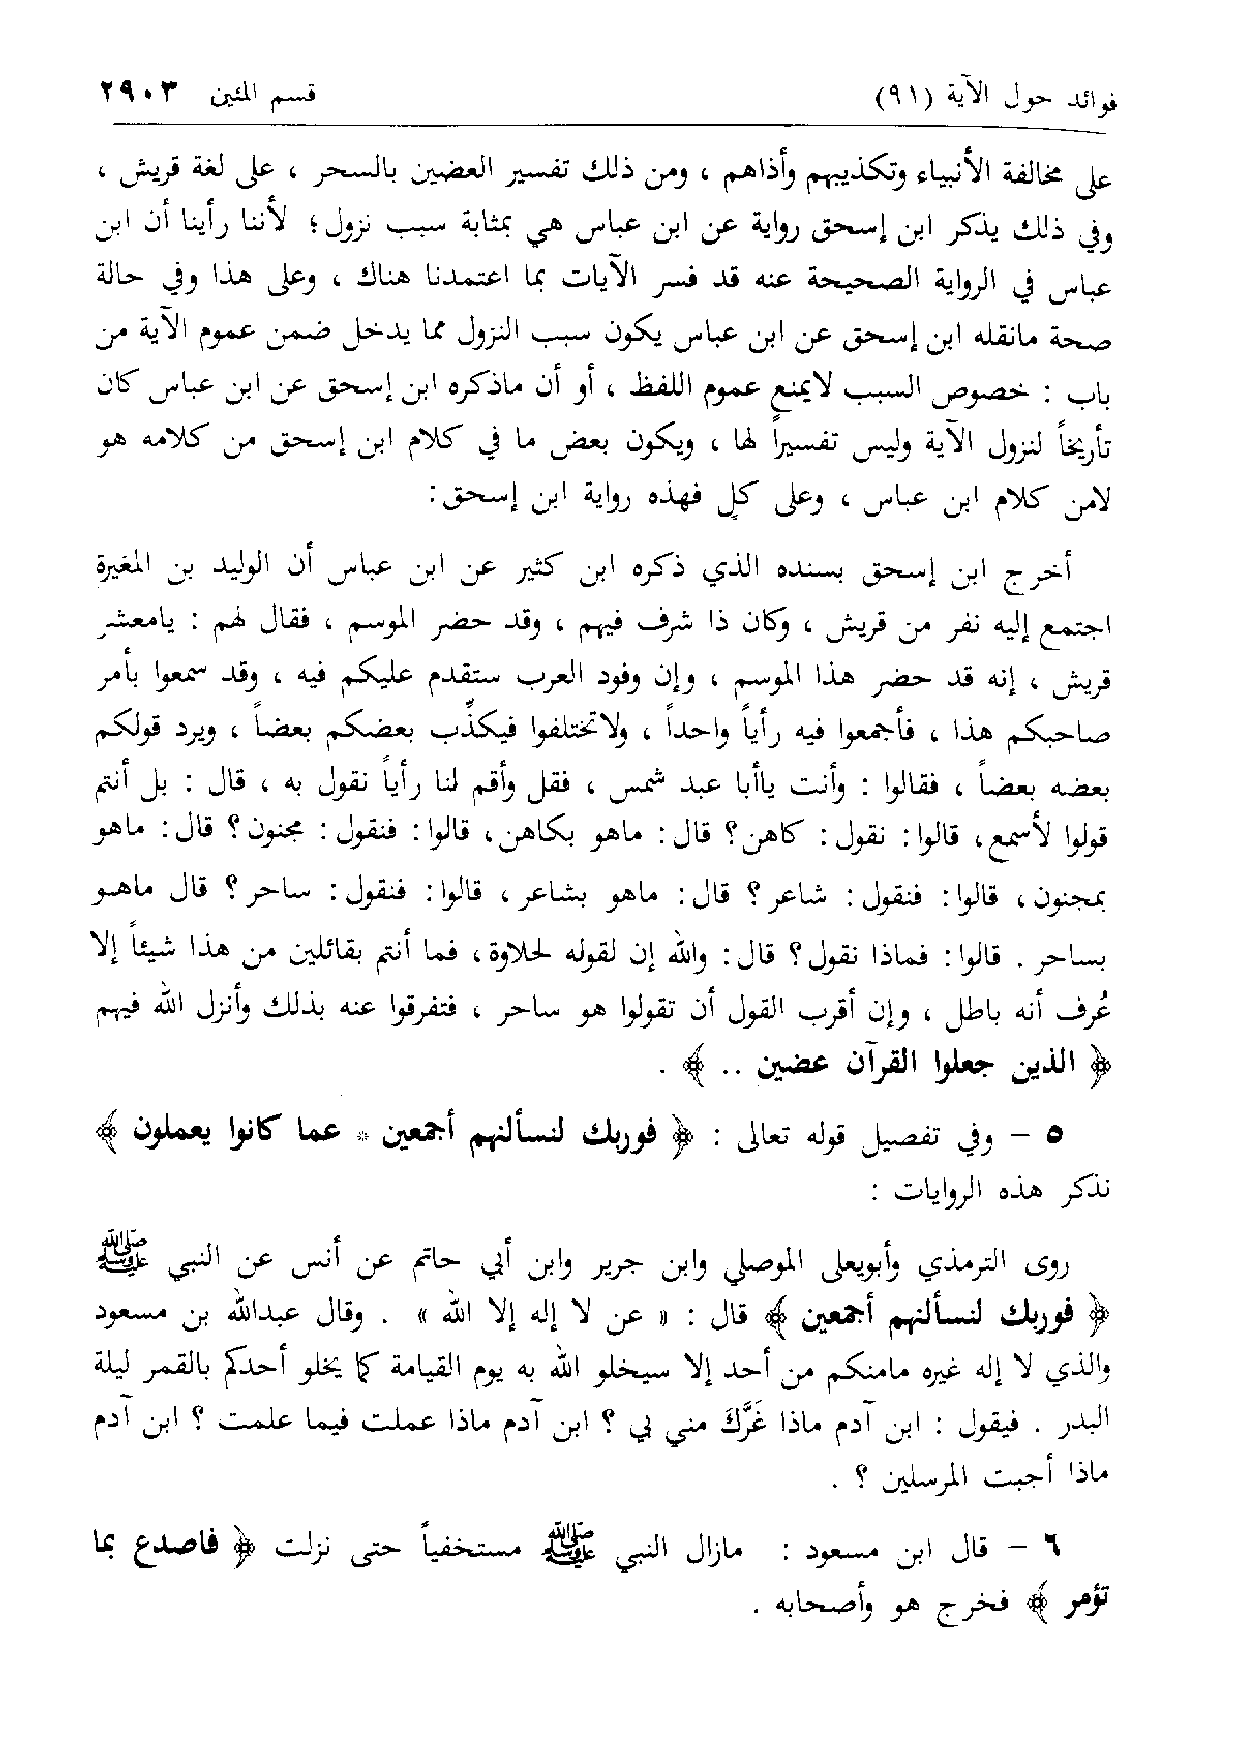 فوائد حول الآية (٩١) قسم المئين ٢٩٠٣
على مخالفة الأنبياء وتكذيبهم وأذاهم ، ومن ذلك تفسير العضين بالسحر ، على لغة قريش ،
وفي ذلك يذكر ابن إسحق رواية عن ابن عباس هي بمثابة سبب نزول ؛ لأننا رأينا أن ابن
عباس في الرواية الصحيحة عنه قد فسر الآيات بما اعتمدنا هناك ، وعلى هذا وفي حالة
صحة مانقله ابن إسحق عن ابن عباس يكون سبب النزول مما يدخل ضمن عموم الآية من
باب : خصوص السبب لايمنع عموم اللفظ ، أو أن ماذكره ابن إسحق عن ابن عباس كان
تأريخاً لنزول الآية وليس تفسيراً لها ، ويكون بعض ما في كلام ابن إسحق من كلامه هو
لامن كلام ابن عباس ، وعلى كل فهذه رواية ابن إسحق:
أخرج ابن إسحق بسنده الذي ذكره ابن كثير عن ابن عباس أن الوليد بن المغيرة
اجتمع إليه نفر من قريش ، وكان ذا شرف فيهم ، وقد حضر الموسم ، فقال لهم : يامعشر
قريش ، إنه قد حضر هذا الموسم ، وإن وفود العرب ستقدم عليكم فيه ، وقد سمعوا بأمر
صاحبكم هذا ، فأجمعوا فيه رأياً واحداً ، ولاتختلفوا فيكذّب بعضكم بعضاً ، ويرد قولكم
بعضه بعضاً ، فقالوا : وأنت ياأبا عبد شمس ، فقل وأقم لنا رأياً نقول به ، قال : بل أنتم
قولوا لأسمع، قالوا: نقول: كاهن؟ قال: ماهو بكاهن، قالوا: فنقول: مجنون؟ قال: ماهو
بمجنون ، قالوا: فنقول: شاعر؟ قال: ماهو بشاعر ، قالوا: فنقول: ساحر؟ قال ماهو
بساحر . قالوا: فماذا نقول؟ قال: والله إن لقوله لحلاوة، فما أنتم بقائلين من هذا شيئاً إلا
عُرف أنه باطل ، وإن أقرب القول أن تقولوا هو ساحر ، فتفرقوا عنه بذلك وأنزل الله فيهم
﴿ الذين جعلوا القرآن عضين .. ﴾ .
٥ – وفي تفصيل قوله تعالى : ﴿ فوربك لنسألنهم أجمعين * عما كانوا يعملون ﴾
نذكر هذه الروايات :
روى الترمذي وأبويعلى الموصلي وابن جرير وابن أبي حاتم عن أنس عن النبي ﷺ
﴿ فوربك لنسألنهم أجمعين ﴾ قال : « عن لا إله إلا الله » . وقال عبدالله بن مسعود
والذي لا إله غيره مامنكم من أحد إلا سيخلو الله به يوم القيامة كما يخلو أحدكم بالقمر ليلة
البدر . فيقول : ابن آدم ماذا غَرَّكَ مني بي ؟ ابن آدم ماذا عملت فيما علمت ؟ ابن آدم
ماذا أجبت المرسلين ؟ .
٦ – قال ابن مسعود : مازال النبي ﷺ مستخفياً حتى نزلت ﴿ فاصدع بما
تؤمر ﴾ فخرج هو وأصحابه .